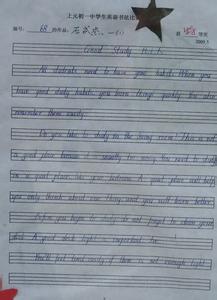 上元初一中学生英语书法比
编号: 68
Good Study Habits
All students need to have good habits. When you
have good study habits, you learn things quickly. You also
remember them easily.
Do you like to study in the living room? This is not
a good place because it is usually too noisy. You need to study
in a good place, like your bedroom. A good place will help
you only think about one thing, and you will learn better.
Before you begin to study, do not forget to clean your
desk. A good desk light is important, too.
You'll feel tired easily if there is not enough light.